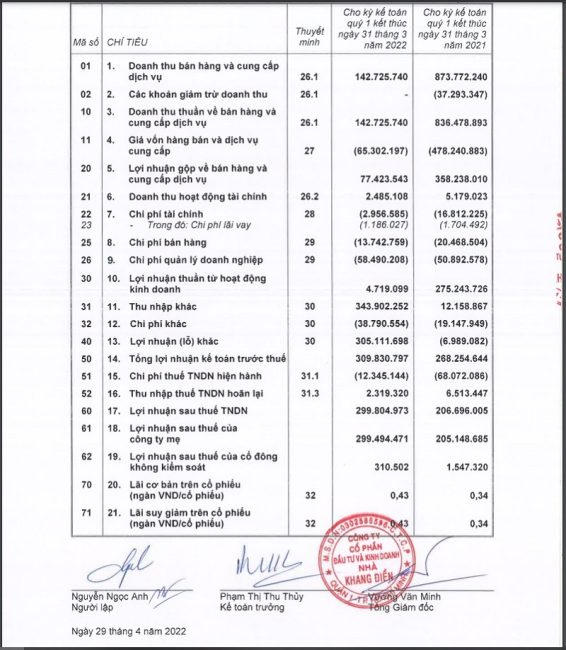 Mã số CHỈ TIÊU Thuyết minh Cho kỳ kế toán quý 1 kết thúc ngày 31 tháng 3 năm 2022 Cho kỳ kế toán quý 1 kết thúc ngày 31 tháng 3 năm 2021
01 1. Doanh thu bán hàng và cung cấp
dịch vụ 26.1 142.725.740 873.772.240
02 2. Các khoản giảm trừ doanh thu 26.1 - (37.293.347)
10 3. Doanh thu thuần về bán hàng và
cung cấp dịch vụ 26.1 142.725.740 836.478.893
11 4. Giá vốn hàng bán và dịch vụ
cung cấp 27 (65.302.197) (478.240.883)
20 5. Lợi nhuận gộp về bán hàng và
cung cấp dịch vụ 77.423.543 358.238.010
21 6. Doanh thu hoạt động tài chính 26.2 2.485.108 5.179.023
22 7. Chi phí tài chính 28 (2.956.585) (16.812.225)
23 - Trong đó: Chi phí lãi vay (1.186.027) (1.704.492)
25 8. Chi phí bán hàng 29 (13.742.759) (20.468.504)
26 9. Chi phí quản lý doanh nghiệp 29 (58.490.208) (50.892.578)
30 10. Lợi nhuận thuần từ hoạt động
kinh doanh 4.719.099 275.243.726
31 11. Thu nhập khác 30 343.902.252 12.158.867
32 12. Chi phí khác 30 (38.790.554) (19.147.949)
40 13. Lợi nhuận (lỗ) khác 30 305.111.698 (6.989.082)
50 14. Tổng lợi nhuận kế toán trước thuế 309.830.797 268.254.644
51 15. Chi phí thuế TNDN hiện hành 31.1 (12.345.144) (68.072.086)
52 16. Thu nhập thuế TNDN hoãn lại 31.3 2.319.320 6.513.447
60 17. Lợi nhuận sau thuế TNDN 299.804.973 206.696.005
61 18. Lợi nhuận sau thuế của
công ty mẹ 299.494.471 205.148.685
62 19. Lợi nhuận sau thuế của cổ đông
không kiểm soát 310.502 1.547.320
70 20. Lãi cơ bản trên cổ phiếu
(ngàn VND/cổ phiếu) 32 0,43 0,34
71 21. Lãi suy giảm trên cổ phiếu
(ngàn VND/cổ phiếu) 32 0,43 0,34
CÔNG TY
CỔ PHẦN
ĐẦU TƯ VÀ KINH DOANH
NHÀ
KHANG ĐIỀN
Nguyễn Ngọc Anh Phạm Thị Thu Thủy Vương Văn Minh
Người lập Kế toán trưởng Tổng Giám đốc
Ngày 29 tháng 4 năm 2022